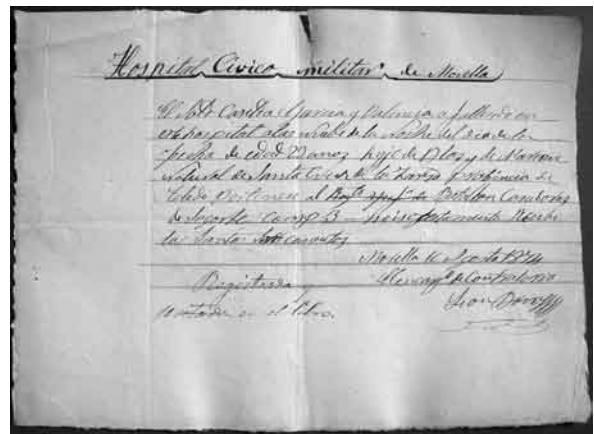 Hospital Civico militar de Morella
El Sdo Garcia y Valencia a fallecido en
este hospital a las nuebe de la noche del dia de la
fecha de edad 22 anoz hijo de Blas y de Mariana
natural de Santa Cruz de la Zarza probincia de
Toledo Pertenese al Batallon Cazadores
de Segorbe comp 3 no iso testamento Recibi
los Santos Sacramentos
Morella Agosto 1874
de Contraloria
Leon
Registrada y
Notada en el libro.